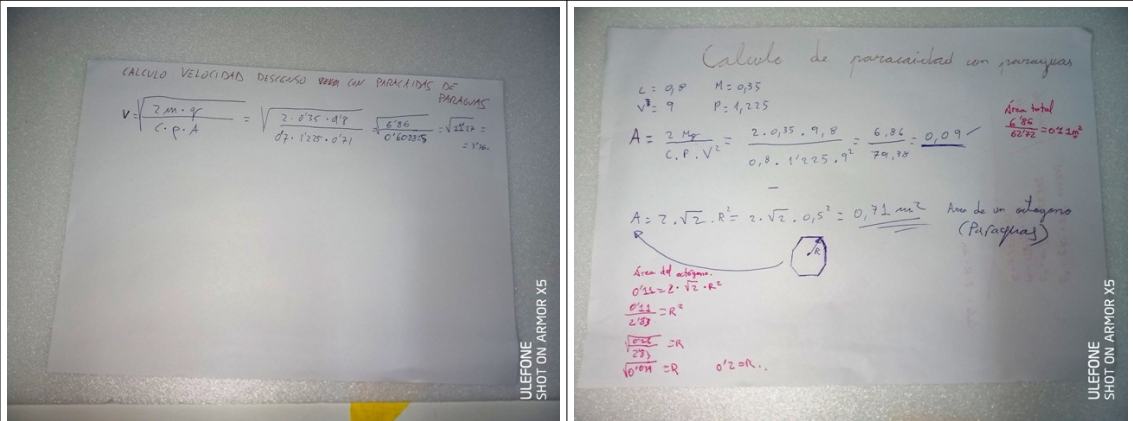 CALCULO VELOCIDAD DESCENSO CON PARACAIDAS DE
PARAGUAS
V = √(2 m · g / C · ρ · A) = √(2 · 0'35 · 9'8 / 0'7 · 1'225 · 0'71) = √(6'86 /
ULEFONE
SHOT ON ARMOR X5
Calculo de paracaidad con paraguas
C = 0,8 M = 0,35
V = 9 P = 1,225
A = 2 Mg / C. P. V² = 2 · 0,35 · 9,8 / 0,8 · 1'225 · 9² = 6,86 / 79,38 = 0,09
Área total
6'86 / 62'72 = 0'11 m²
A = 2 · √2 · R² = 2 · √2 · 0,5² = 0,71 m² Area de un octogono
(Paraguas)
R
Área del octógono.
0'11 = 2 · √2 · R²
0'11 / 2'83 = R²
= R
= R 0'2 = R..
ULEFONE
SHOT ON ARMOR X5